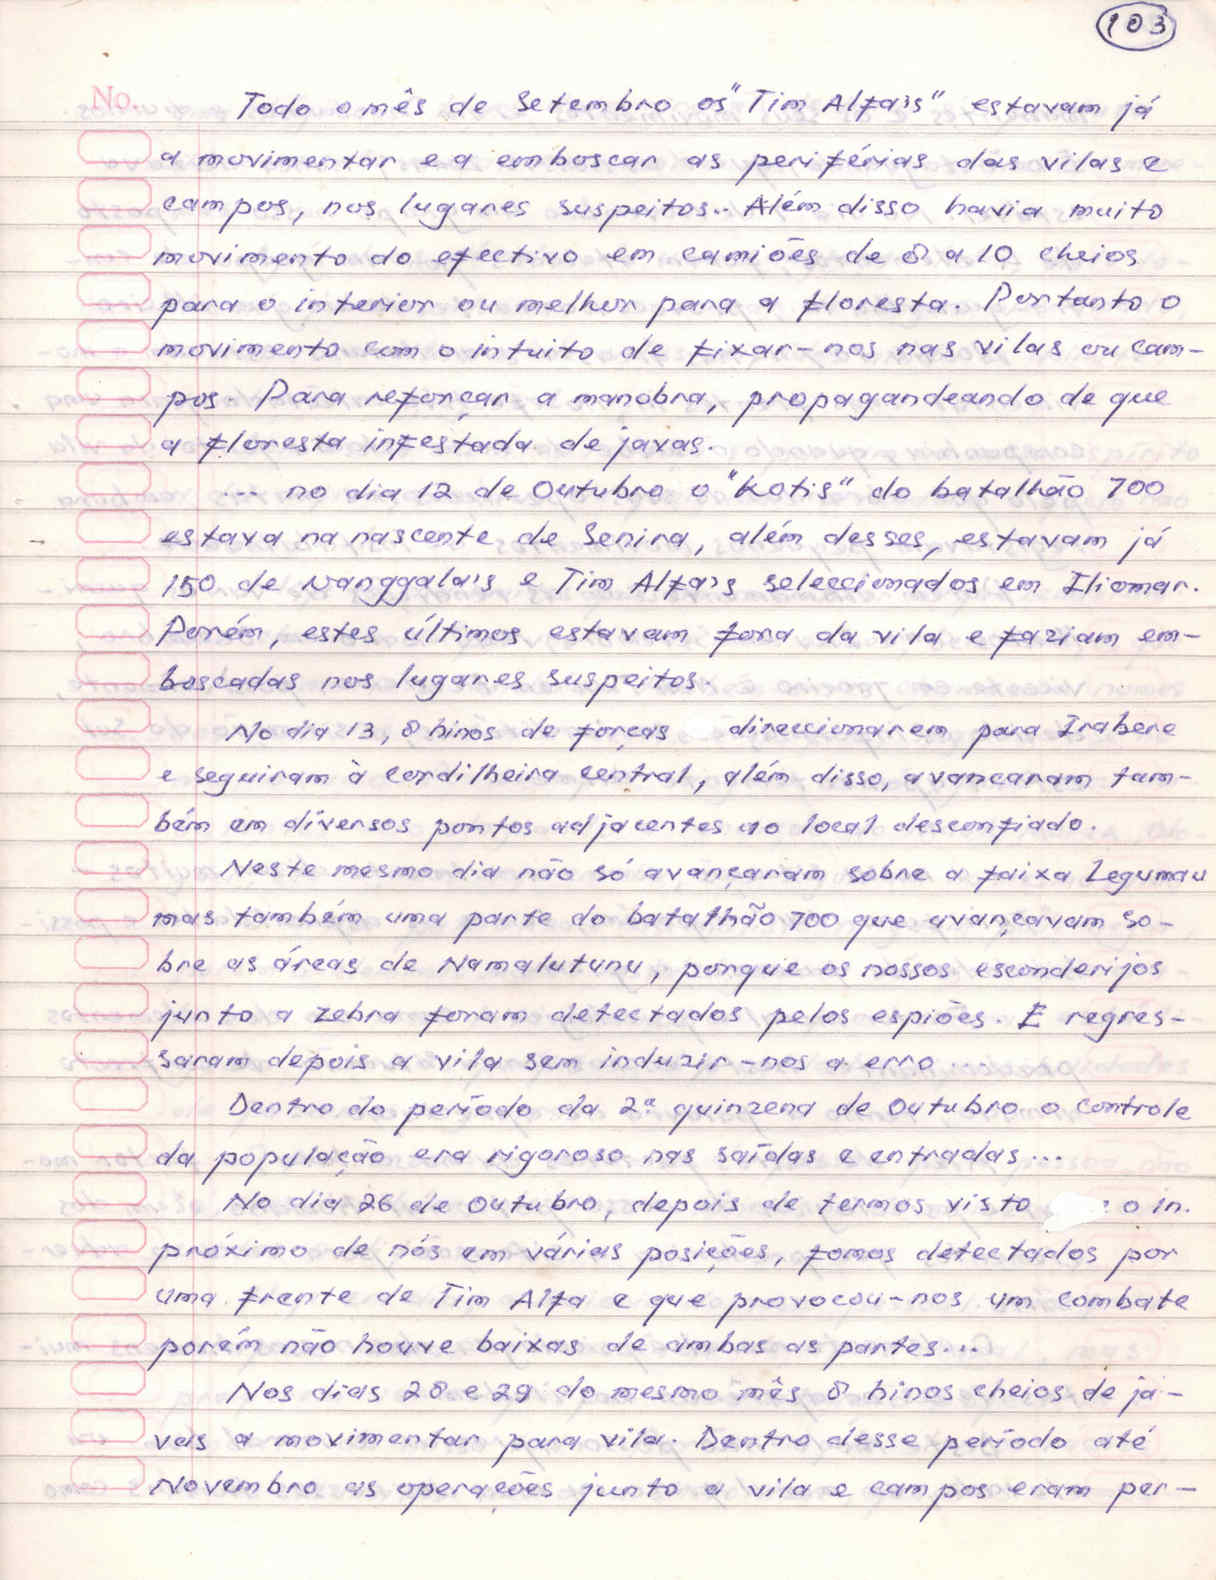 103
No.
Todo o mês de Setembro os "Tim Alfa's" estavam já
a movimentar e a emboscar as periférias das vilas e
campos, nos lugares suspeitos.. Além disso havia muito
movimento do efectivo em camiões de 8 a 10 cheios
para o interior ou melhor para a floresta. Portanto o
movimento com o intuito de fixar-nos nas vilas ou cam-
pos. Para reforçar a manobra, propagandeando de que
a floresta infestada de javas.
... no dia 12 de Outubro o "Kotis" do batalhão 700
estava na nascente de Senira, além desses, estavam já
150 de Nanggala's e Tim Alfa's seleccionados em Iliomar.
Porém, estes últimos estavam fora da vila e faziam em-
boscadas nos lugares suspeitos.
No dia 13, 8 hinos de forças direccionarem para Irabere
e seguiram à cordilheira central, além disso, avancaram tam-
bém em diversos pontos adjacentes ao local desconfiado.
Neste mesmo dia não só avançaram sobre a faixa Legumau
mas também uma parte do batalhão 700 que avançavam so-
bre as áreas de Namalutunu, porque os nossos esconderijos
junto a Zebra foram detectados pelos espiões. E regres-
saram depois a vila sem induzir-nos a erro ...
Dentro do período da 2ª quinzena de Outubro o controle
da população era rigoroso nas saídas e entradas ...
No dia 26 de Outubro, depois de termos visto o in.
próximo de nós em várias posições, fomos detectados por
uma frente de Tim Alfa e que provocou-nos um combate
porém não houve baixas de ambas as partes...
Nos dias 28 e 29 do mesmo mês 8 hinos cheios de ja-
vas a movimentar para vila. Dentro desse período até
Novembro as operações junto a vila e campos eram per-